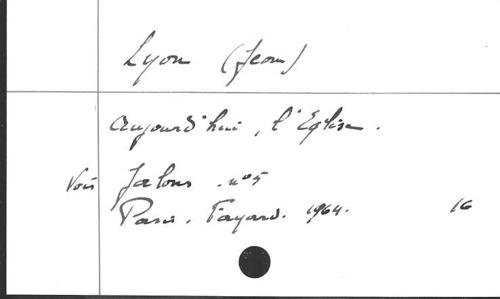 Lyon (Jean)
Aujourd'hui, l'Eglise.
Voir Jalons. n°5
Paris. Fayard. 1964. 16